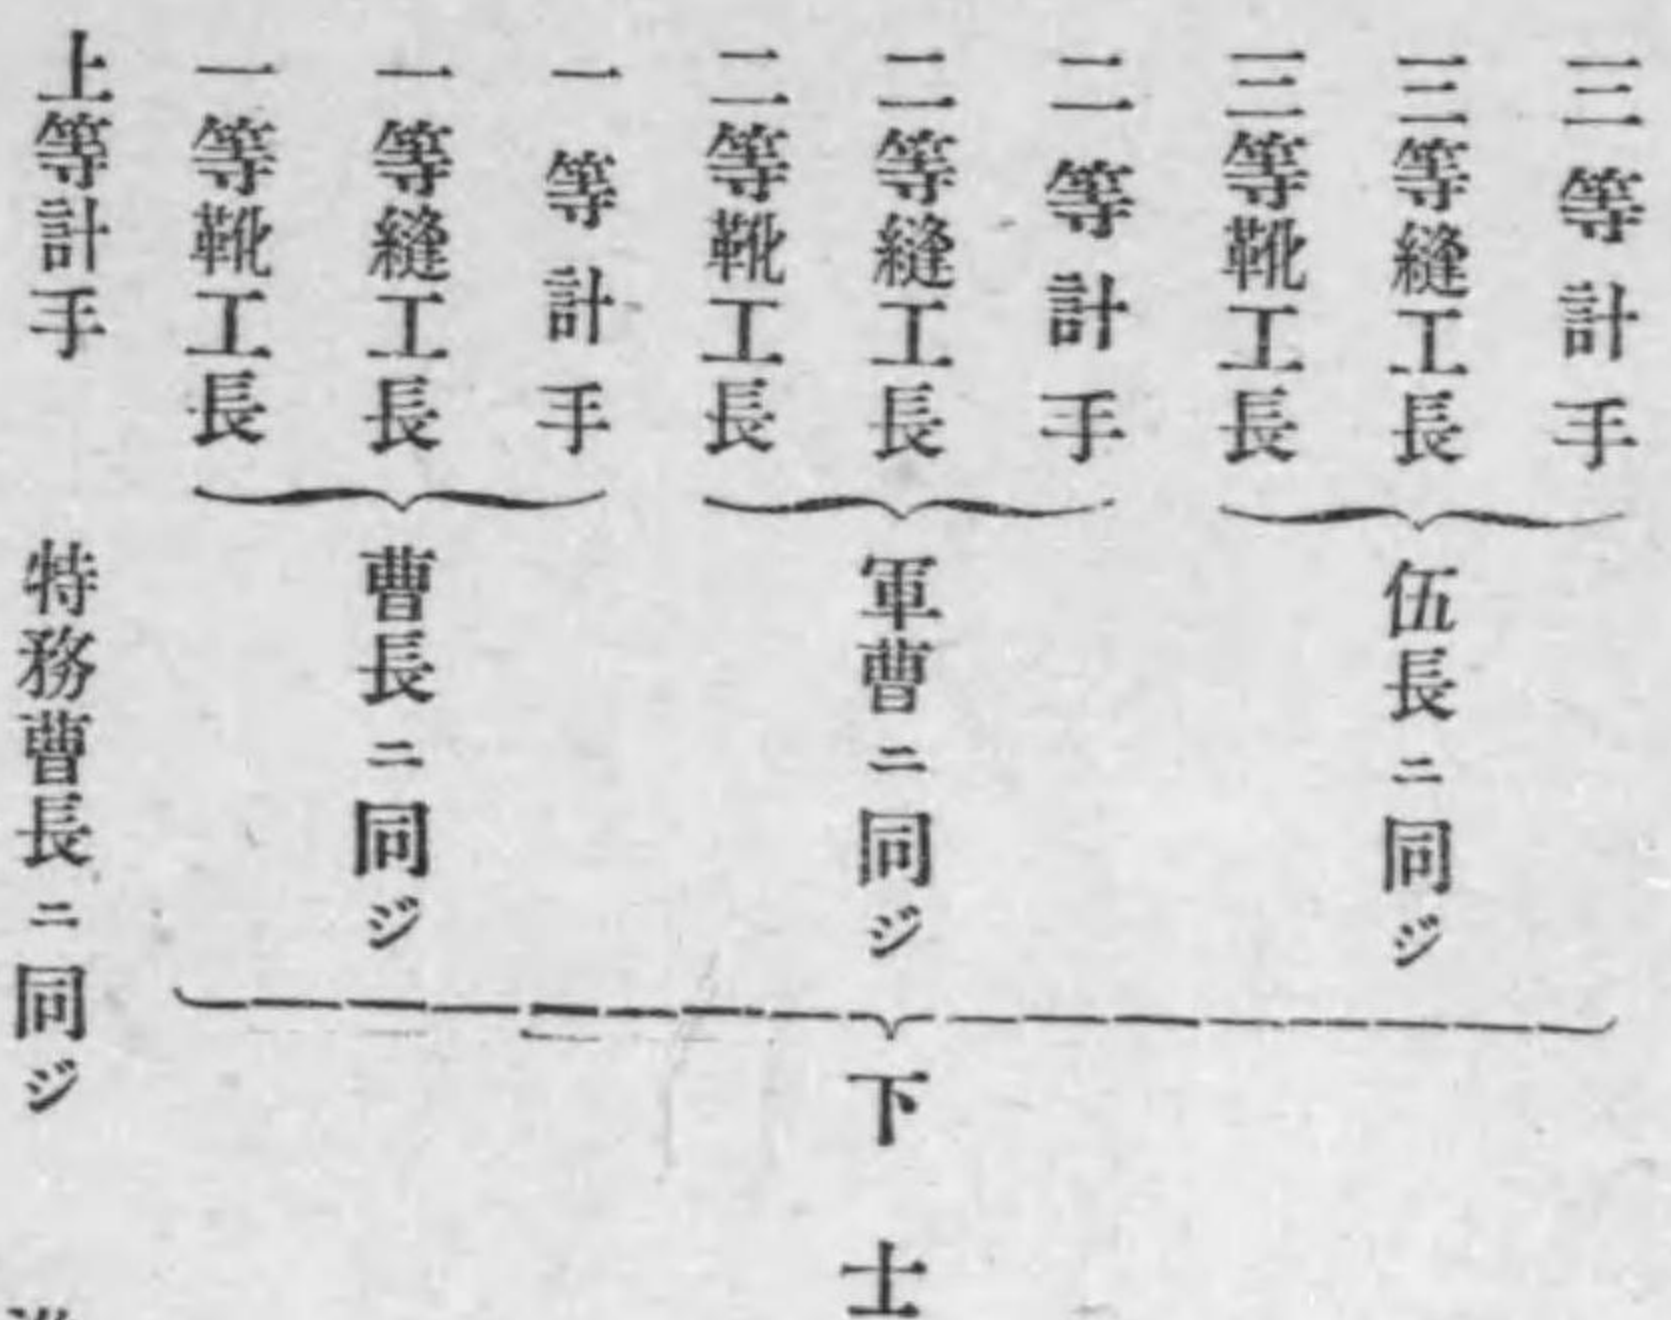 三等計手
三等縫工長
三等靴工長
伍長ニ同ジ
二等計手
二等縫工長
二等靴工長
軍曹ニ同ジ
一等計手
一等縫工長
一等靴工長
曹長ニ同ジ
下士
上等計手 特務曹長ニ同ジ